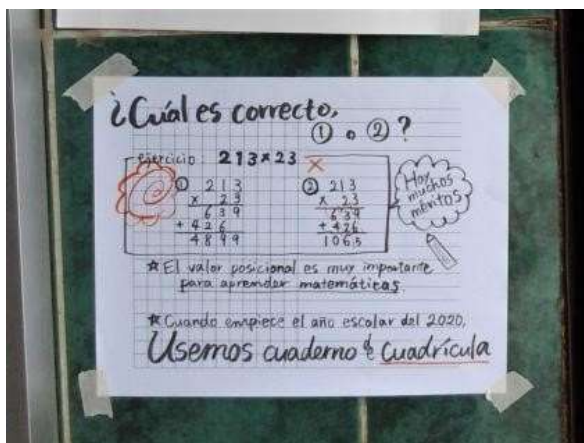 ¿Cuál es correcto,
① o ② ?
ejercicio: 213×23
① 213
× 23
639
+ 426
4899
② 213
× 23
639
+ 426
1065
Hay
muchos
méritos
☆ El valor posicional es muy importante
para aprender matemáticas.
☆ Cuando empiece el año escolar del 2020,
Usemos cuaderno de cuadrícula